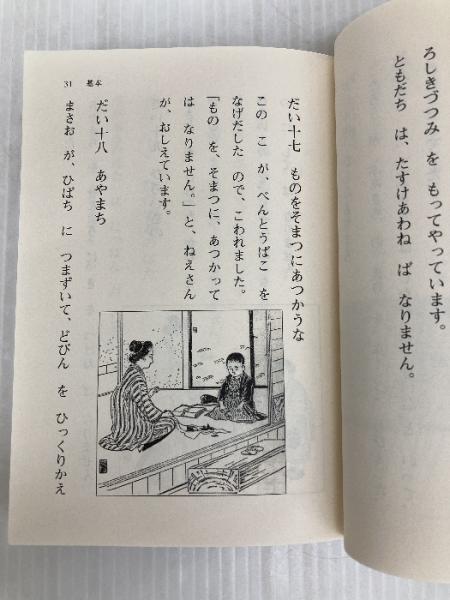 ろしきづつみ を もってやっています。
ともだち は、たすけあわね ば なりません。
31 基本
だい十七 ものをそまつにあつかうな
この こ が、べんとうばこ を
なげだした ので、こわれました。
「もの を、そまつに、あつかって
は なりません。」と、ねえさん
が、おしえています。
だい十八 あやまち
まさお が、ひばち に つまずいて、どびん を ひっくりかえ